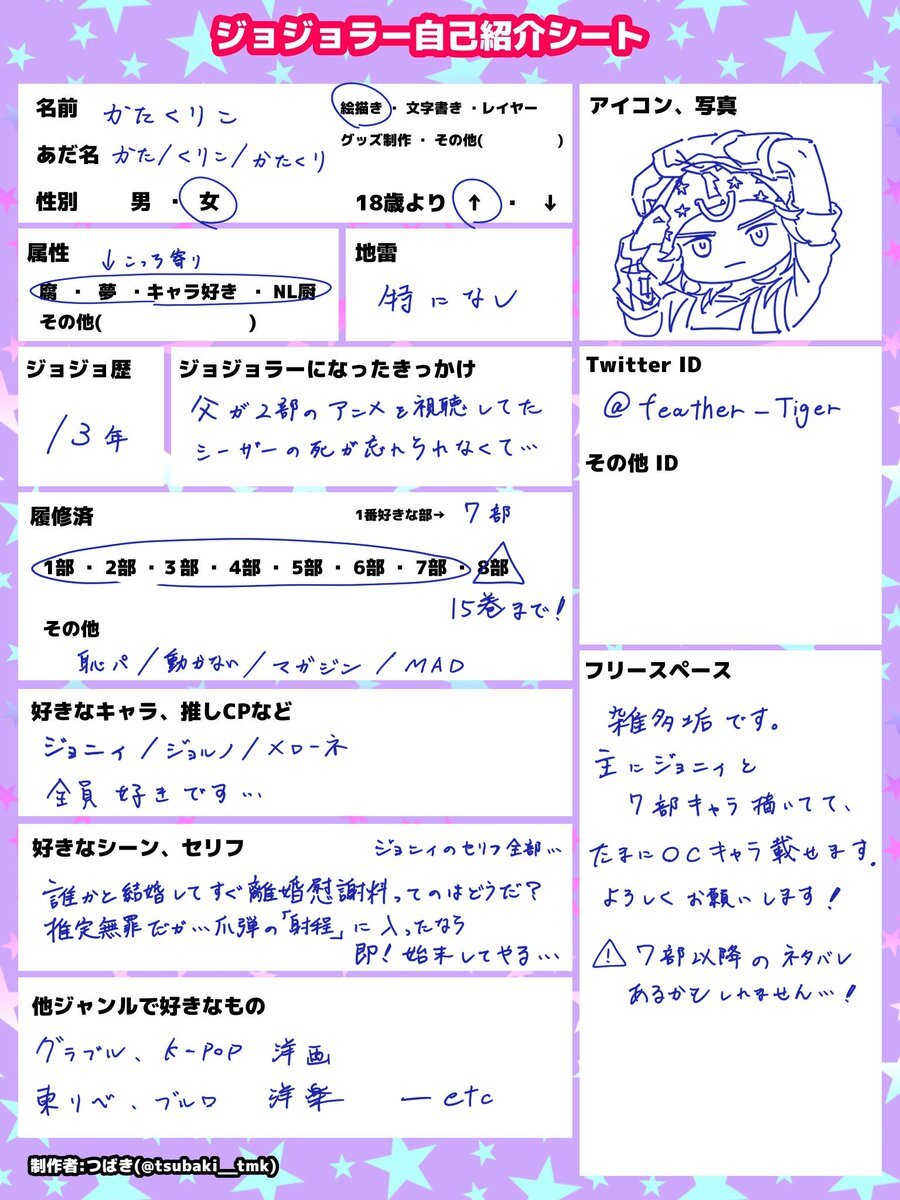 ジョジョラー自己紹介シート
名前 かたくりこ
絵描き・文字書き・レイヤー
グッズ制作・その他( )
あだ名 かた/くりこ/かたくり
性別 男・女
18歳より ↑・↓
アイコン、写真
属性 ↓こっち寄り
腐・夢・キャラ好き・NL厨
その他( )
地雷
特になし
ジョジョ歴
13年
ジョジョラーになったきっかけ
父が2部のアニメを視聴してた
シーザーの死が忘れられなくて…
Twitter ID
@feather_Tiger
その他 ID
履修済
1番好きな部→ 7部
1部・2部・3部・4部・5部・6部・7部・8部
15巻まで!
その他
恥パ/動かない/マガジン/MAD
好きなキャラ、推しCPなど
ジョニィ/ジョルノ/メローネ
全員好きです…
好きなシーン、セリフ
ジョニィのセリフ全部…
誰かと結婚してすぐ離婚慰謝料ってのはどうだ?
推定無罪だが…爪弾の「射程」に入ったなら
即!始末してやる…
他ジャンルで好きなもの
グラブル、K-POP 洋画
東リベ、ブルロ 洋楽 ―etc
フリースペース
雑多垢です。
主にジョニィと
7部キャラ描いてて、
たまにOCキャラ載せます。
よろしくお願いします!
⚠7部以降のネタバレ
あるかもしれません…!
制作者:つばき(@tsubaki__tmk)